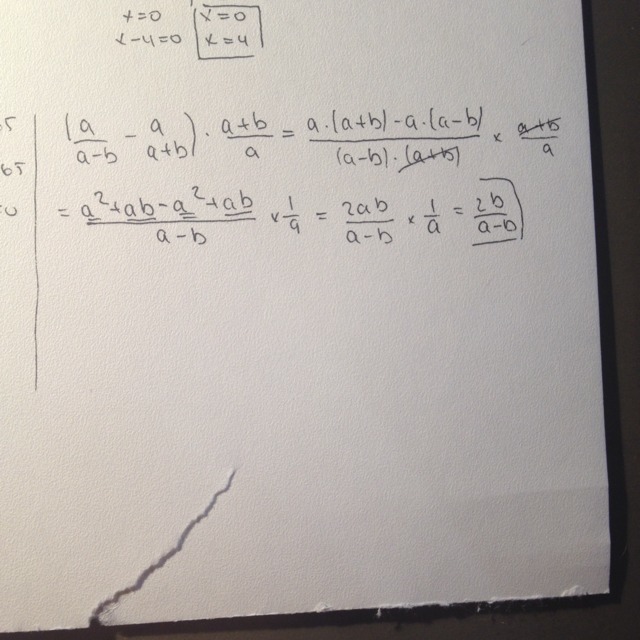 x=0 x=0
x-4=0 x=4
65
(a/a-b - a/a+b) · a+b/a = a·(a+b)-a·(a-b)/(a-b)·(a+b) × a+b/a
= a²+ab-a²+ab/a-b × 1/a = 2ab/a-b × 1/a = 2b/a-b